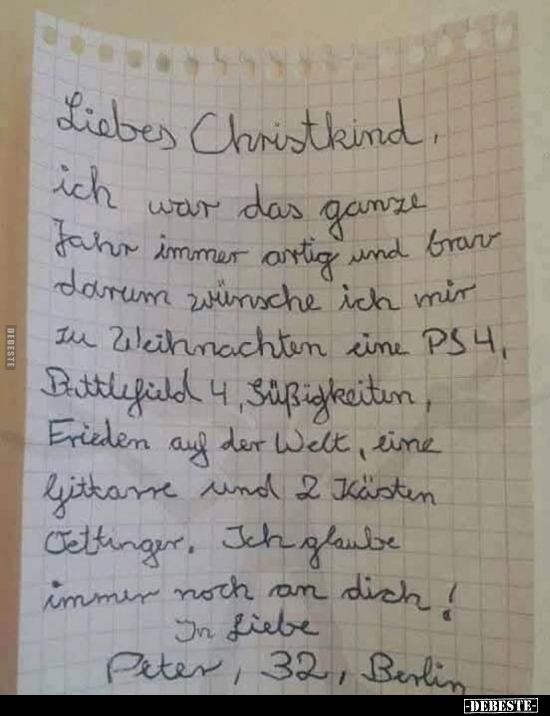 Liebes Christkind,
ich war das ganze
Jahr immer artig und brav
darum wünsche ich mir
zu Weihnachten eine PS4,
Battlefield 4, Süßigkeiten,
Frieden auf der Welt, eine
Gittarre und 2 Kästen
Oettinger. Ich glaube
immer noch an dich!
In Liebe
Peter, 32, Berlin
DEBESTE
-DEBESTE-